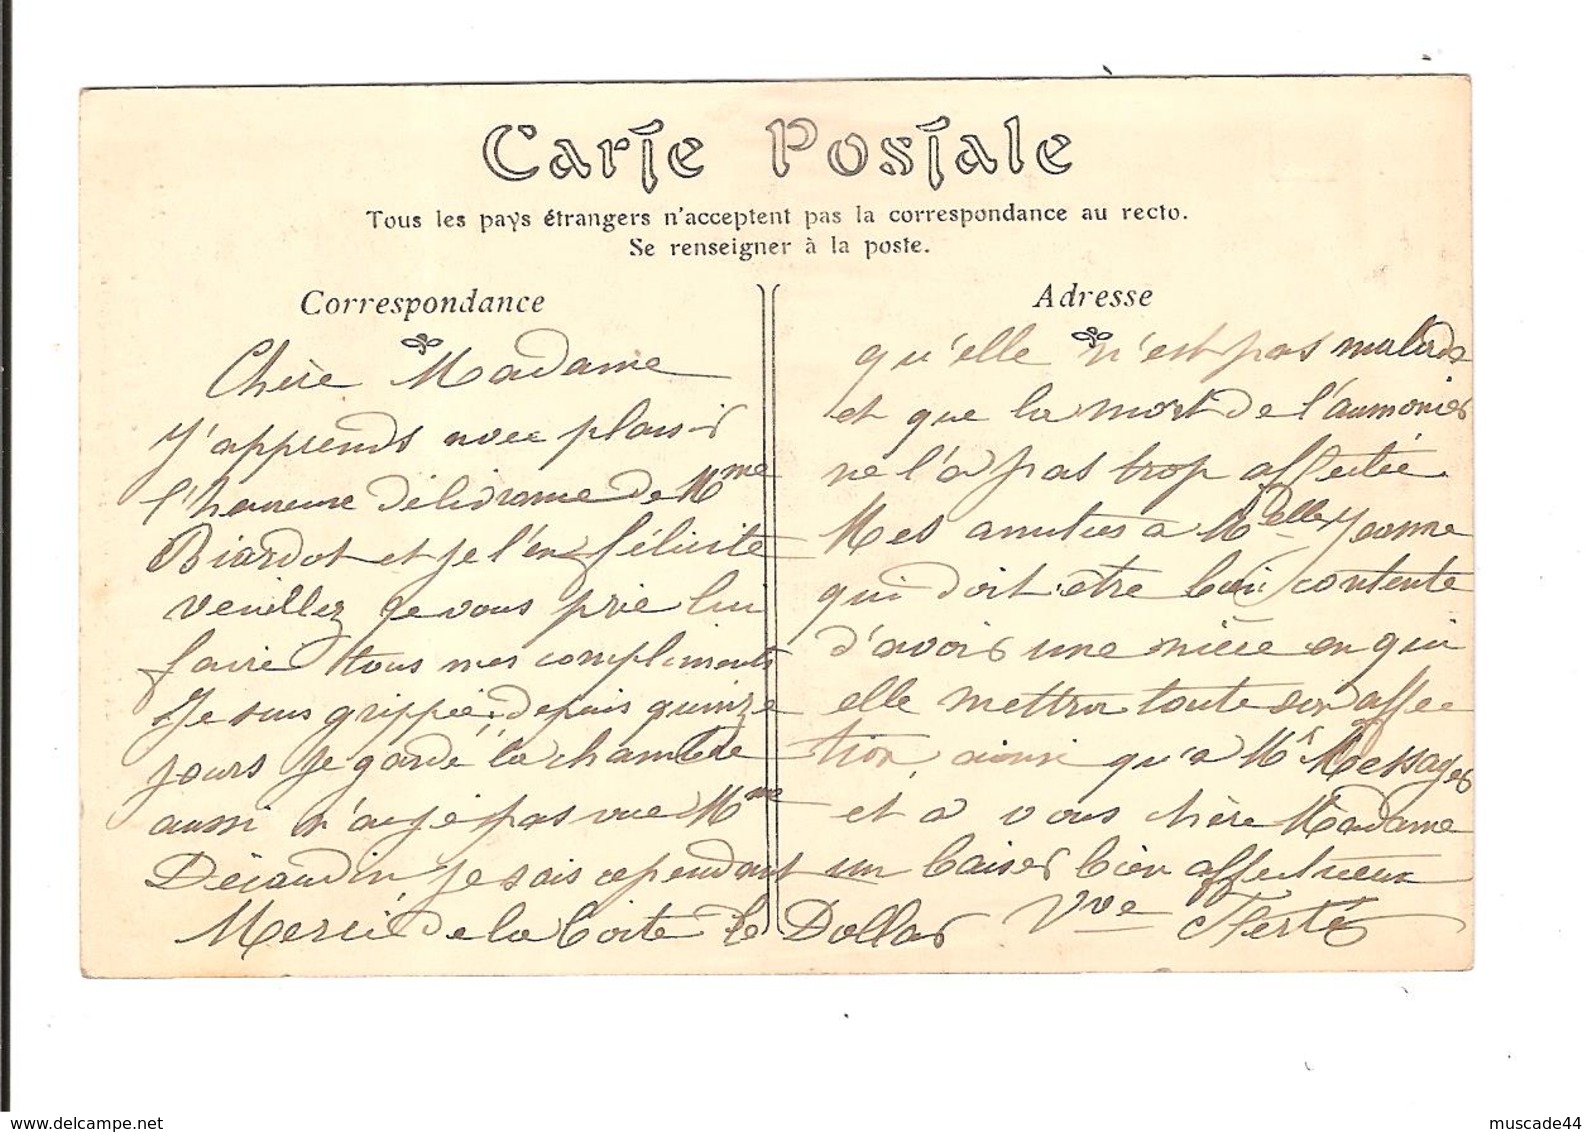 Carte Postale
Tous les pays étrangers n'acceptent pas la correspondance au recto.
Se renseigner à la poste.
Correspondance
Chère Madame
J'apprends avec plaisir
l'heureuse délivrance de Mme
Biardot et je l'en félicite
veuillez je vous prie lui
faire tous mes compliments
Je suis grippée depuis quinze
jours je garde la chambre
aussi n'ai je pas vue Mme
Déjardin, je sais cependant
Adresse
qu'elle n'est pas malade
et que la mort de l'aumonier
ne l'a pas trop affectée
Mes amitiés a Melle Jeanne
qui doit être bien contente
d'avoir une nièce en qui
elle mettra toute son affec
tion, ainsi qu'a Mr Messager
et a vous chère Madame
un baiser bien affectueux
Merci de la boite de Dollar Vve
delcampe.net
muscade44